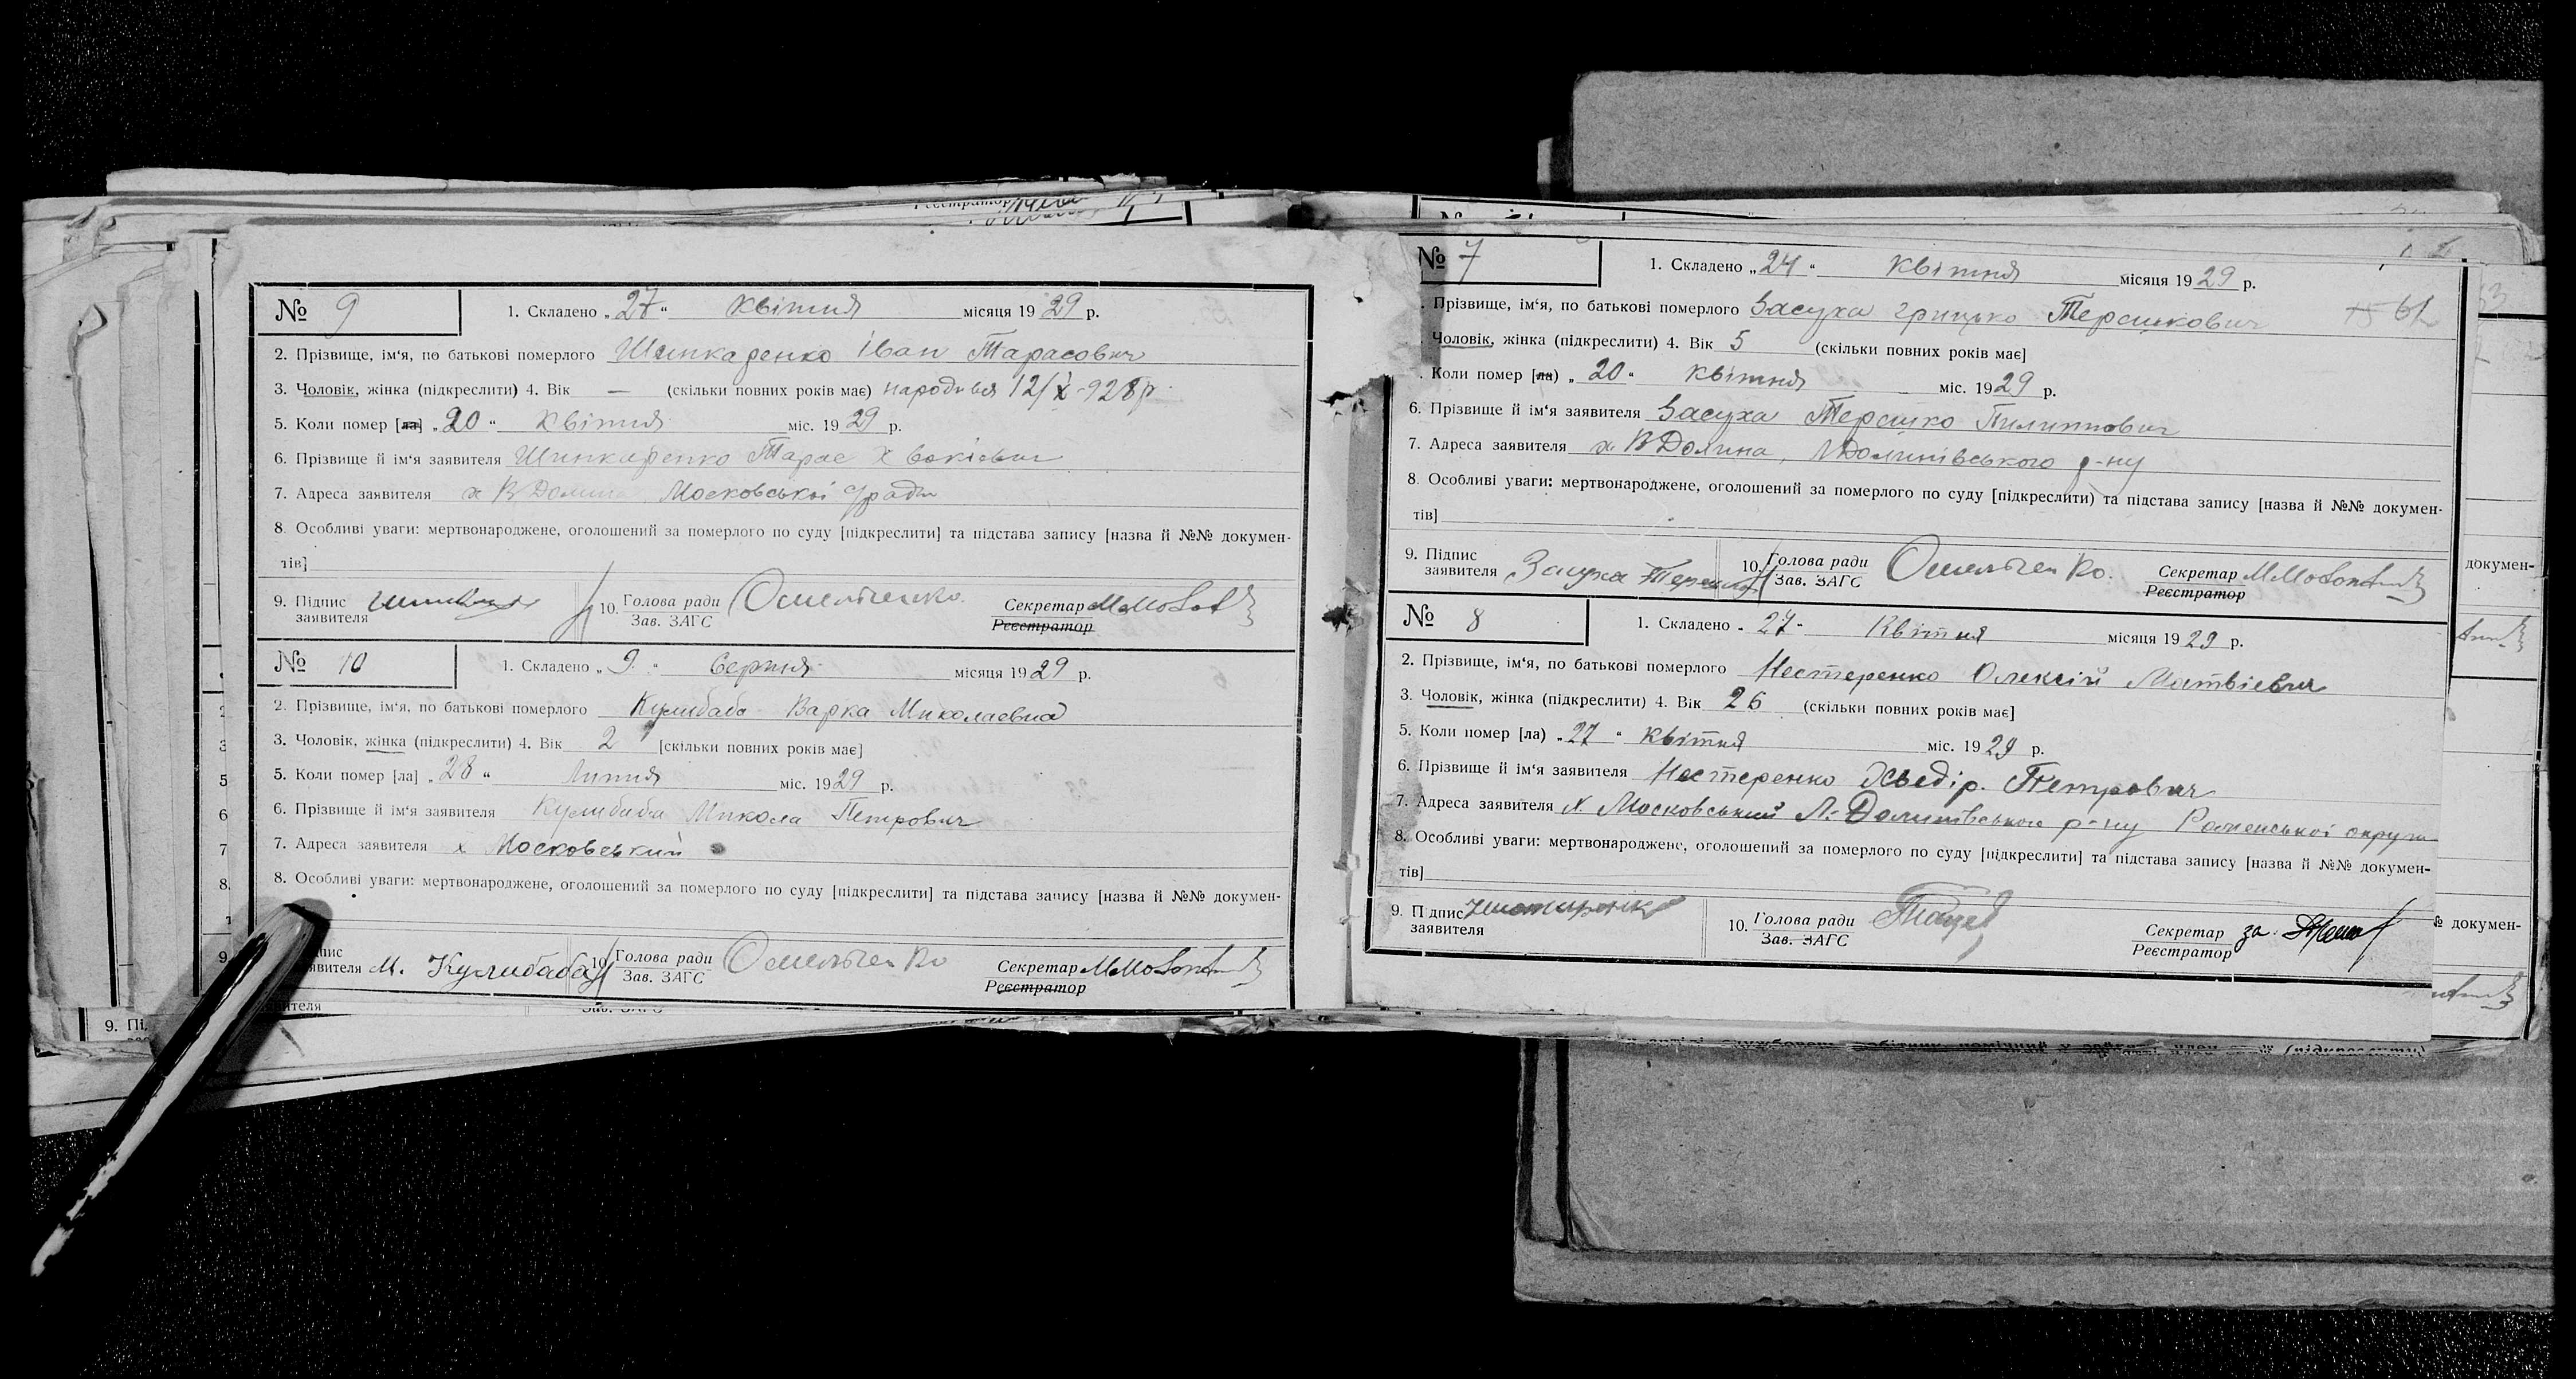 № 9
1. Складено „27“ Квітня місяця 1929 р.
2. Прізвище, ім‘я, по батькові померлого Шинкаренко Іван Тарасович
3. Чоловік, жінка (підкреслити) 4. Вік — (скільки повних років має) народився 12/X-928р.
5. Коли помер [ла] „20“ Квітня міс. 1929 р.
6. Прізвище й ім‘я заявника Шинкаренко Тарас
7. Адреса заявителя х ВДолина, Московської с/ради
8. Особливі уваги: мертвонароджене, оголошений за померлого по суду [підкреслити] та підстава запису [назва й №№ докумен-
тів]
9. Підпис заявителя 10. Голова ради Зав. ЗАГС Омельченко Секретар Реєстратор
№ 10
1. Складено „9“ Серпня місяця 1929 р.
2. Прізвище, ім‘я, по батькові померлого Кулибаба Варка Миколаевна
3. Чоловік, жінка (підкреслити) 4. Вік 2 [скільки повних років має]
5. Коли помер [ла] „28“ Липня міс. 1929 р.
6. Прізвище й ім‘я заявителя Кулибаба Микола Петрович
7. Адреса заявителя х Московський
8. Особливі уваги: мертвонароджене, оголошений за померлого по суду [підкреслити] та підстава запису [назва й №№ докумен-
М. Кулибаба 10. Голова ради Зав. ЗАГС Омельченко Секретар Реєстратор
№ 7
1. Складено „24“ Квітня місяця 1929 р.
Прізвище, ім‘я, по батькові померлого Засуха Грицько Терешкович
61
Чоловік, жінка (підкреслити) 4. Вік 5 (скільки повних років має]
Коли помер [ла) „20“ Квітня міс. 1929 р.
6. Прізвище й ім‘я заявителя Засуха Терешко Пилиппович
7. Адреса заявителя х. ВДолина, ЛДолинівського р-ну
8. Особливі уваги: мертвонароджене, оголошений за померлого по суду [підкреслити) та підстава запису [назва й №№ докумен-
тів]
9. Підпис заявителя Засуха Терешко 10. Голова ради Зав. ЗАГС Омельченко. Секретар Реєстратор
№ 8
1. Складено „27“ Квітня місяця 1929 р.
2. Прізвище, ім‘я, по батькові померлого Нестеренко Олексій Матвієвич
3. Чоловік, жінка (підкреслити) 4. Вік 26 (скільки повних років має]
5. Коли помер [ла) „27“ Квітня міс. 1929 р.
6. Прізвище й ім‘я заявителя Нестеренко Хведір. Петрович
7. Адреса заявителя х. Московський Л.-Долинівського р-ну Роменської округи
8. Особливі уваги: мертвонароджене, оголошений за померлого по суду [підкреслити] та підстава запису [назва й №№ докумен-
тів]
9. Підпис заявителя 10. Голова ради Зав. ЗАГС Секретар Реєстратор за